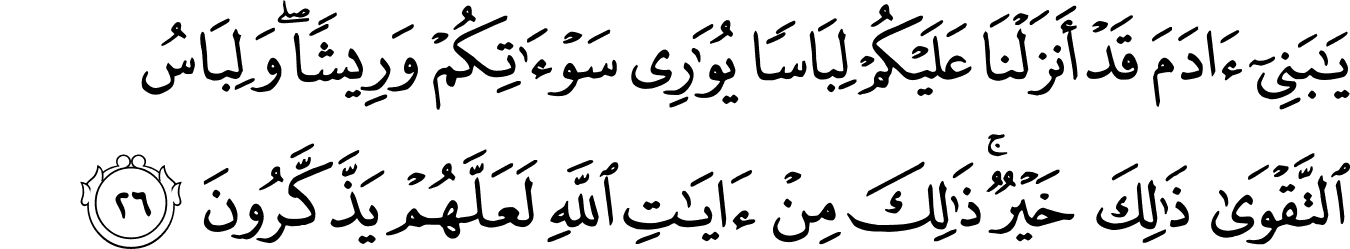 يَٰبَنِىٓ ءَادَمَ قَدْ أَنزَلْنَا عَلَيْكُمْ لِبَاسًا يُوَٰرِى سَوْءَٰتِكُمْ وَرِيشًا ۖ وَلِبَاسُ
ٱلتَّقْوَىٰ ذَٰلِكَ خَيْرٌ ۚ ذَٰلِكَ مِنْ ءَايَٰتِ ٱللَّهِ لَعَلَّهُمْ يَذَّكَّرُونَ ٢٦